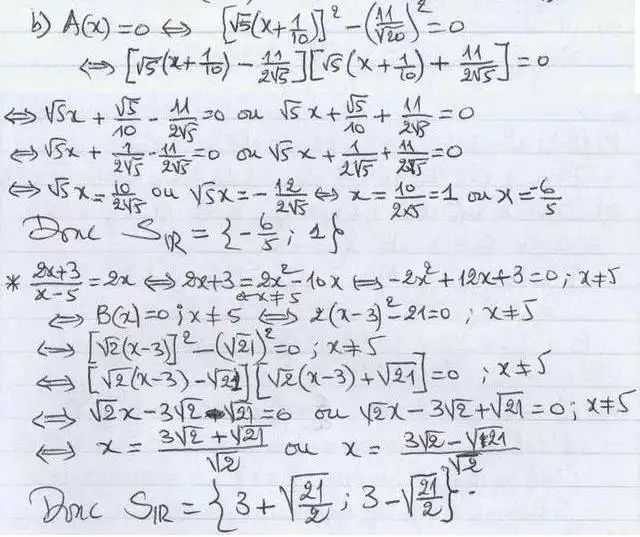 b) A(x)=0 ⇔ [√5(x+1/10)]² − (11/√20)² = 0
⇔ [√5(x+1/10) − 11/2√5][√5(x+1/10) + 11/2√5] = 0
⇔ √5x + √5/10 − 11/2√5 = 0 ou √5x + √5/10 + 11/2√5 = 0
⇔ √5x + 1/2√5 − 11/2√5 = 0 ou √5x + 1/2√5 + 11/2√5 = 0
⇔ √5x = 10/2√5 ou √5x = −12/2√5 ⇔ x = 10/2×5 = 1 ou x = −6/5
Donc S_IR = {−6/5 ; 1}
* 2x+3/x−5 = 2x ⇔ 2x+3 = 2x²−10x ⇔ −2x²+12x+3 = 0 ; x≠5
et x≠5
⇔ B(x)=0 ; x≠5 ⇔ 2(x−3)²−21=0 ; x≠5
⇔ [√2(x−3)]² − (√21)² = 0 ; x≠5
⇔ [√2(x−3) − √21][√2(x−3) + √21] = 0 ; x≠5
⇔ √2x − 3√2 − √21 = 0 ou √2x − 3√2 + √21 = 0 ; x≠5
⇔ x = 3√2 + √21/√2 ou x = 3√2 − √21/√2
Donc S_IR = {3 + √21/2 ; 3 − √21/2}.